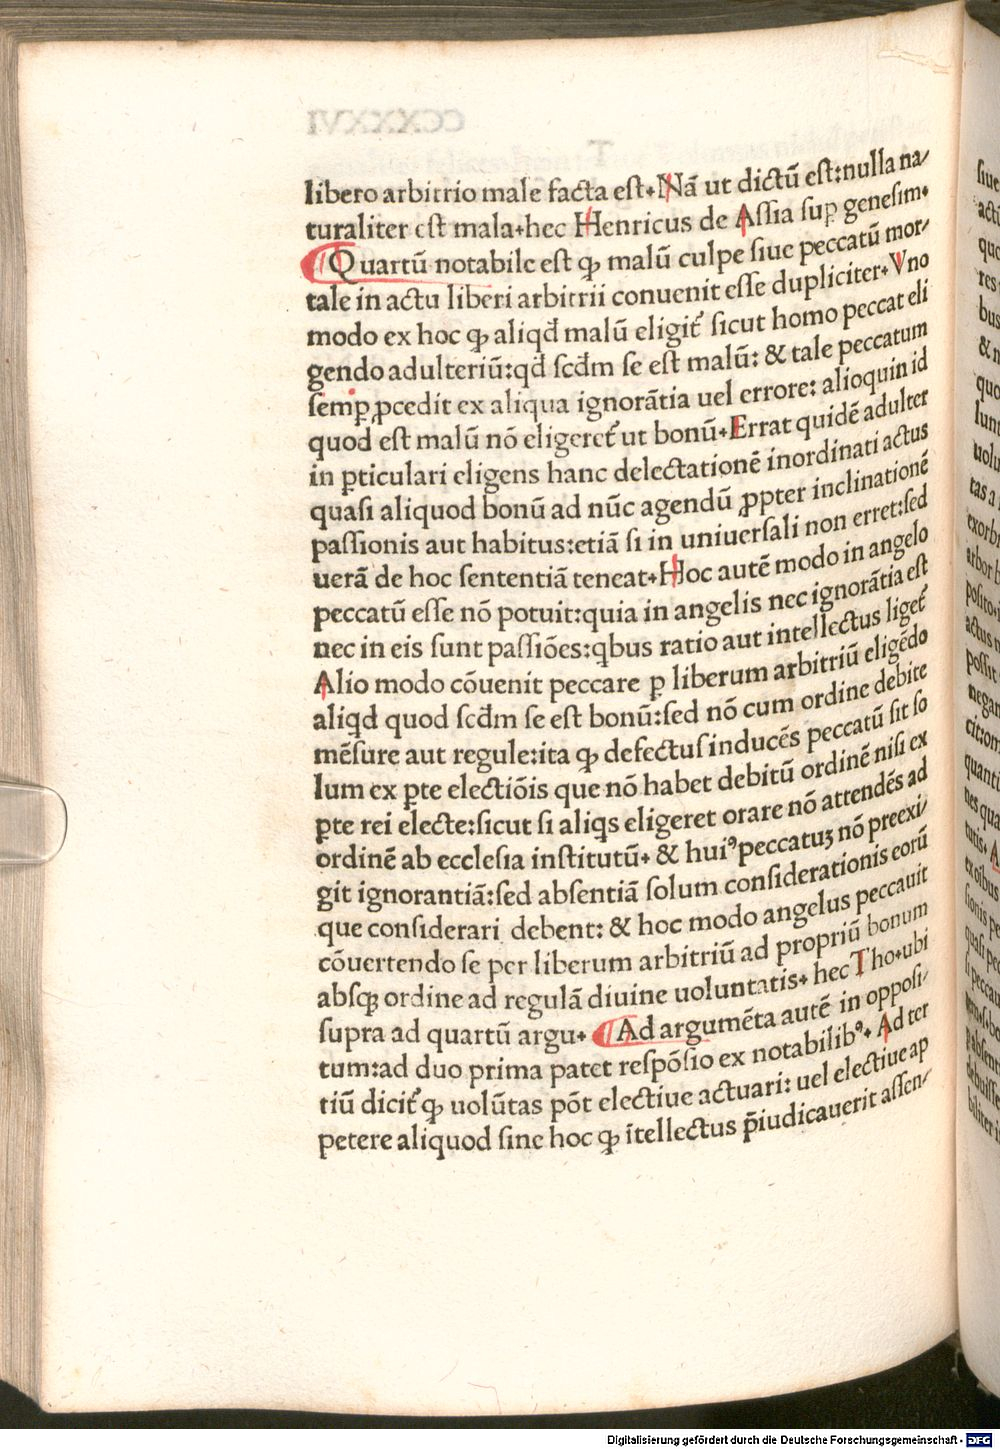 libero arbitrio male facta est. Nã ut dictũ est:nulla na/
turaliter est mala.hec Henricus de Assia suꝑ genesim.
Quartũ notabile est ꝙ malũ culpe siue peccatũ mor/
tale in actu liberi arbitrii conuenit esse dupliciter. Vno
modo ex hoc ꝙ aliqd̃ malũ eligit᷑ sicut homo peccat eli
gendo adulteriũ:qd̃ scd̃m se est malũ: & tale peccatum
semꝑ ꝓcedit ex aliqua ignorãtia uel errore: alioquin id
quod est malũ nõ eligeret᷑ ut bonũ. Errat quidẽ adulter
in ꝑticulari eligens hanc delectationẽ inordinati actus
quasi aliquod bonũ ad nũc agendũ ꝓpter inclinationẽ
passionis aut habitus:etiã si in uniuersali non erret:sed
uerã de hoc sententiã teneat. Hoc autẽ modo in angelo
peccatũ esse nõ potuit:quia in angelis nec ignorãtia est
nec in eis sunt passiões:qbus ratio aut intellectus liget᷑
Alio modo cõuenit peccare ꝑ liberum arbitriũ eligẽdo
aliqd quod scd̃m se est bonũ:sed nõ cum ordine debite
mẽsure aut regule:ita ꝙ defectus inducẽs peccatũ sit so
lum ex ꝑte electiõis que nõ habet debitũ ordinẽ nisi ex
ꝑte rei electe:sicut si aliqs eligeret orare nõ attendẽs ad
ordinẽ ab ecclesia institutũ. & huiꝰ peccatuꝫ nõ preexi/
git ignorantiã:sed absentiã solum considerationis eorũ
que considerari debent: & hoc modo angelus peccauit
cõuertendo se per liberum arbitriũ ad propriũ bonum
absqꝫ ordine ad regulã diuine uoluntatis. hec Tho.ubi
supra ad quartũ argu. Ad argumẽta autẽ in opposi/
tum:ad duo prima patet respõsio ex notabilibꝰ. Ad ter
tiũ dicit᷑ ꝙ uolũtas põt electiue actuari: uel electiue ap
petere aliquod sine hoc ꝙ ĩtellectus p̃iudicauerit assen/
CCXXXVI
Digitalisierung gefördert durch die Deutsche Forschungsgemeinschaft - DFG